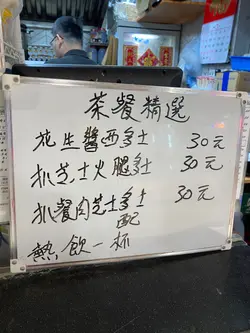 茶餐精選
花生醬西多士 30元
扒芝士火腿多士 30元
扒餐肉芝士多士 30元
配
熱飲一杯